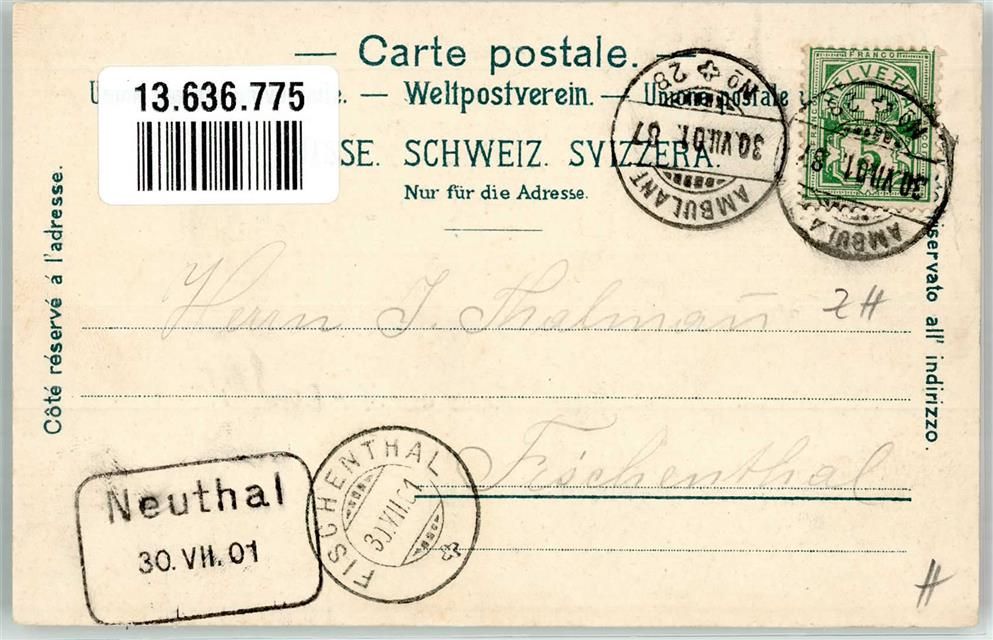 Carte postale.
13.636.775
Weltpostverein. — Union postale
SSE. SCHWEIZ. SVIZZERA.
Nur für die Adresse.
Côté réservé à l'adresse.
riservato all' indirizzo
FRANCO
HELVETIA
AMBULANT
No 28
30.VII.01. 87
AMBULA
No
30.VII.01 8
Herrn J. Thalmañ
ZH
Fischenthal
FISCHENTHAL
30.VII.01
Neuthal
30.VII.01
H